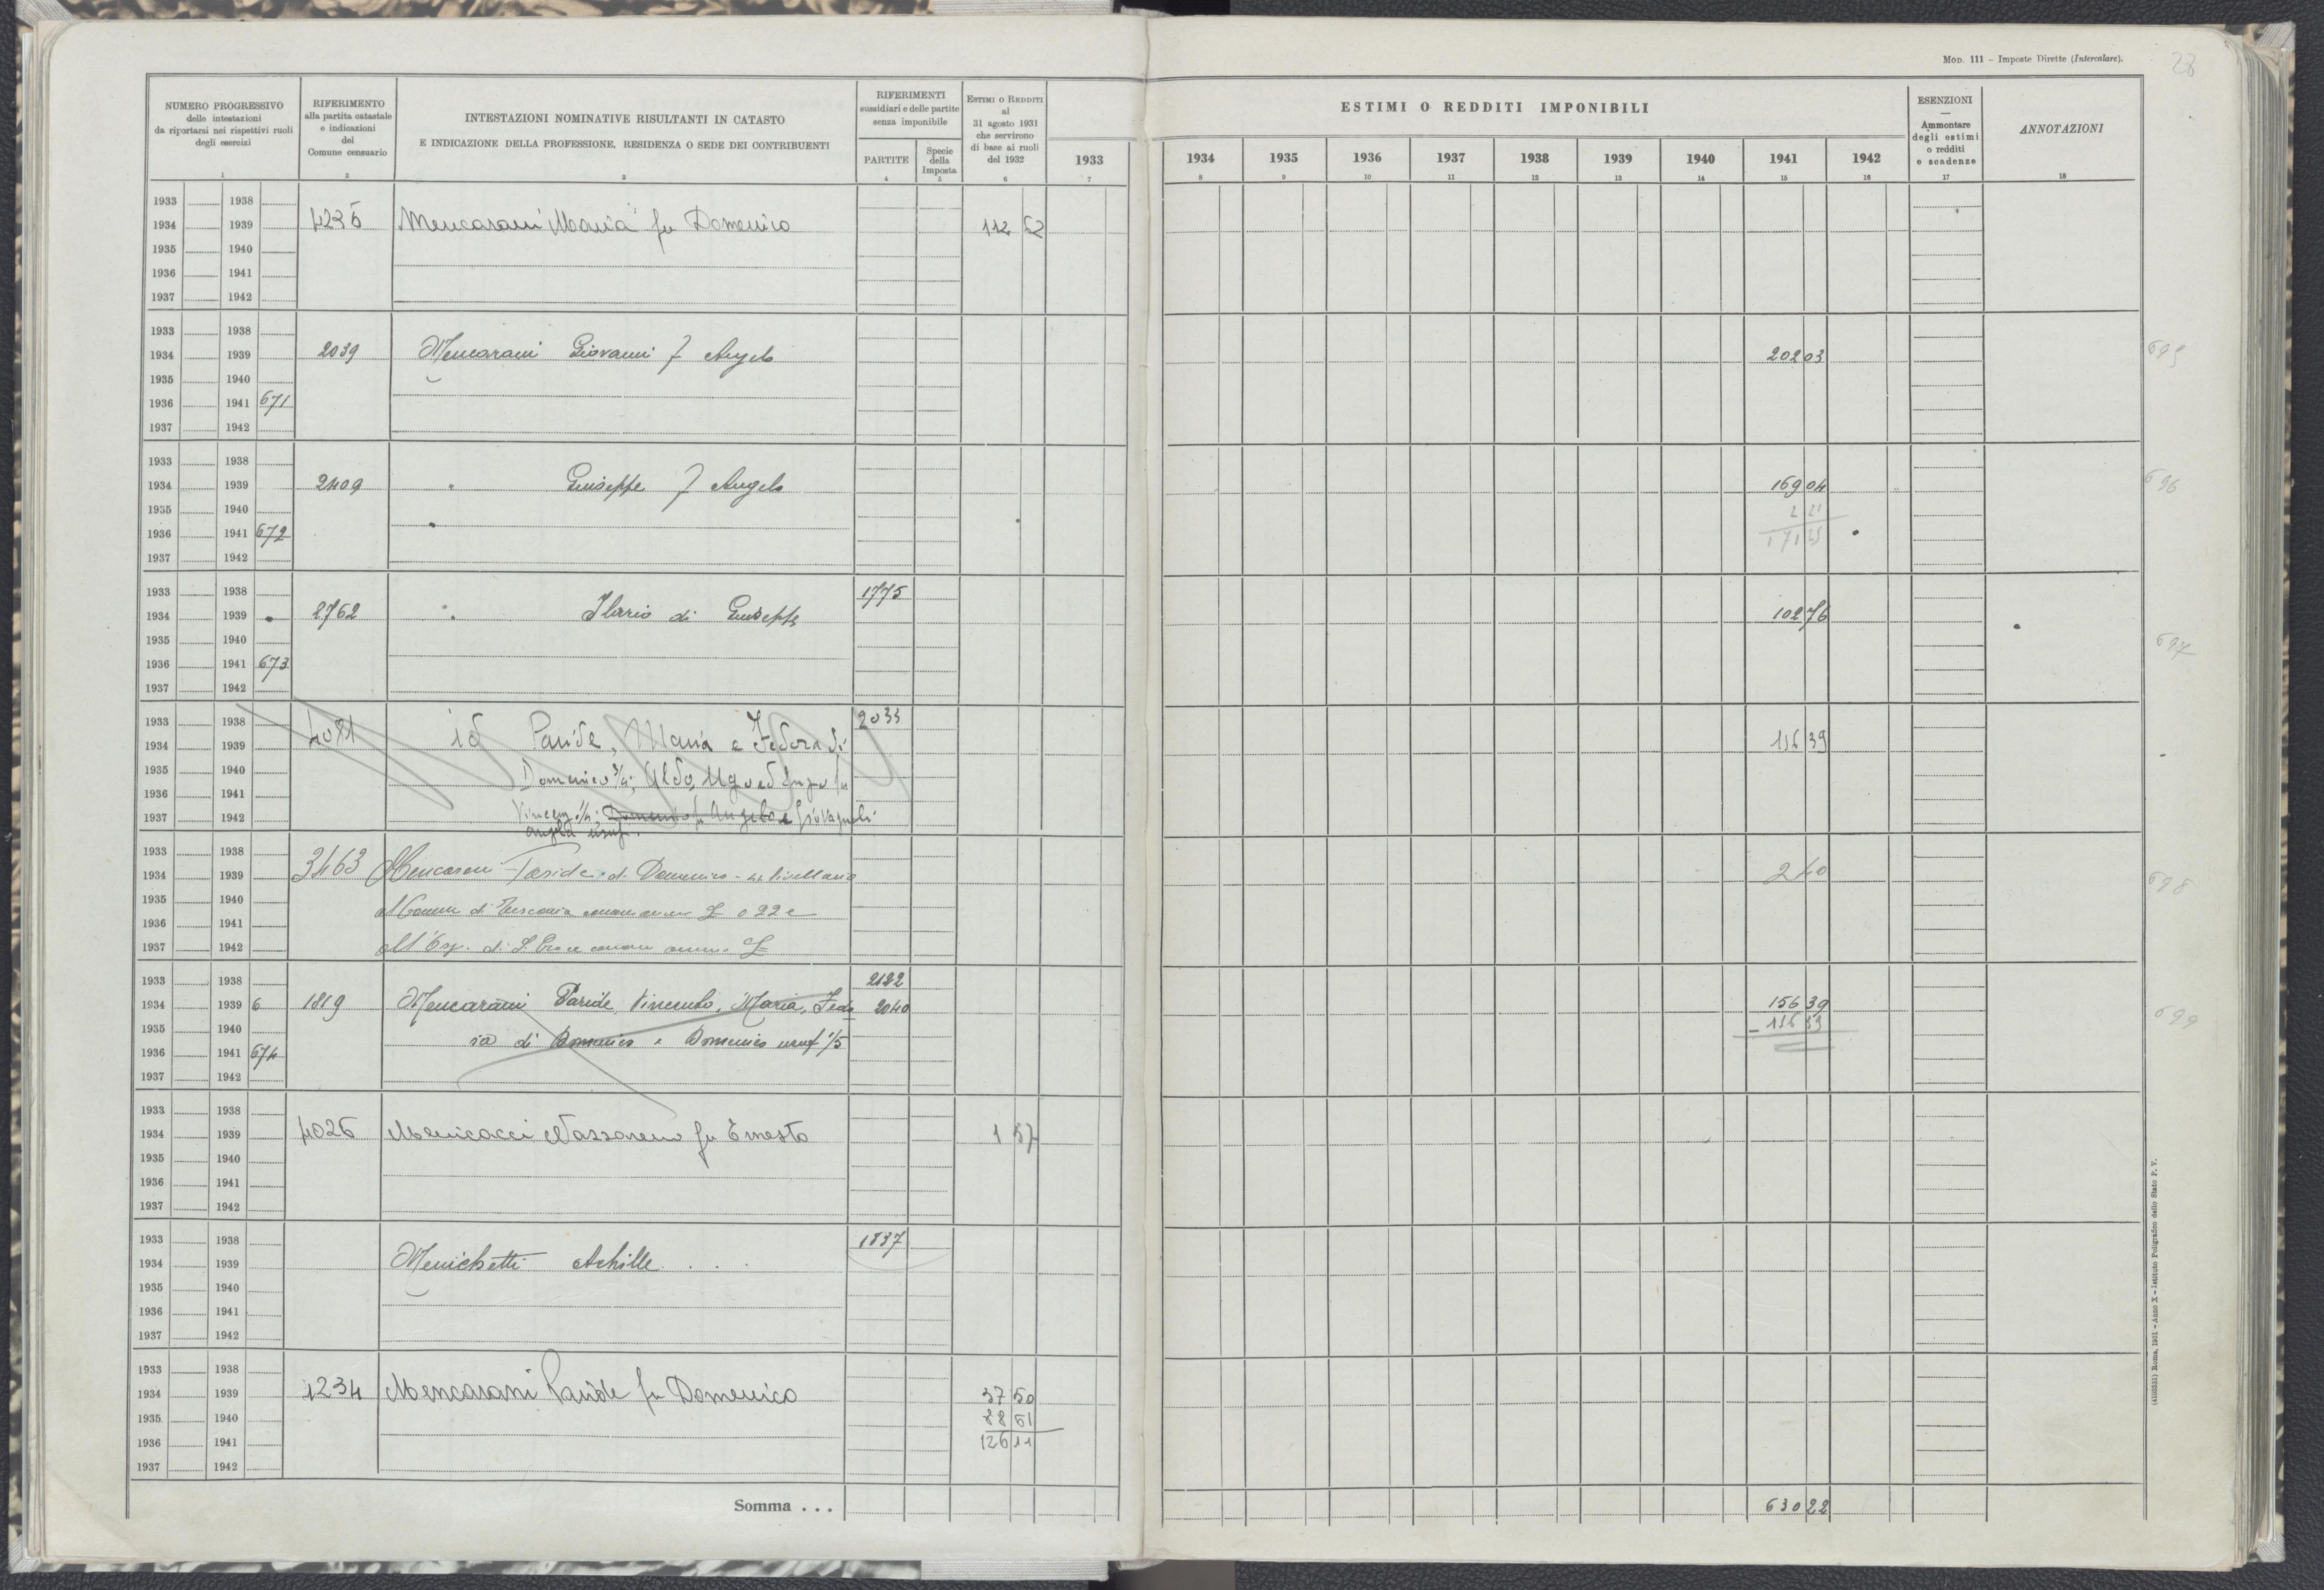 Mod. 111 – Imposte Dirette (Intercalare).
NUMERO PROGRESSIVO
delle intestazioni
da riportarsi nei rispettivi ruoli
degli esercizi
1
RIFERIMENTO
alla partita catastale
e indicazioni
del
Comune censuario
2
INTESTAZIONI NOMINATIVE RISULTANTI IN CATASTO
E INDICAZIONE DELLA PROFESSIONE, RESIDENZA O SEDE DEI CONTRIBUENTI
3
RIFERIMENTI
sussidiari e delle partite
senza imponibile
PARTITE
4
Specie
della
Imposta
5
ESTIMI O REDDITI
al
31 agosto 1931
che servirono
di base ai ruoli
del 1932
6
1933
7
ESTIMI O REDDITI IMPONIBILI
1934 1935 1936 1937 1938 1939 1940 1941 1942
8 9 10 11 12 13 14 15 16
ESENZIONI
—
Ammontare
degli estimi
o redditi
e scadenze
17
ANNOTAZIONI
18
1933 1938
1934 1939 4235 Mencarani Maria fu Domenico 112 52
1935 1940
1936 1941
1937 1942
1933 1938
1934 1939 2039 Mencarani Giovanni f Angelo 202 03 695
1935 1940
1936 1941 671
1937 1942
1933 1938
1934 1939 2409 " Giuseppe f Angelo 169 04 696
1935 1940 2 21
1936 1941 672 171 25
1937 1942
1933 1938 1775
1934 1939 2762 " Ilario di Giuseppe 102 76
1935 1940 697
1936 1941 673
1937 1942
1933 1938 2033
1934 1939 4081 id Paride, Maria e Fedora di 136 39
1935 1940 Domenico 3/4; Aldo, Ugo ed Enzo fu
1936 1941
1937 1942 Vincenz 1/4; Domenico fu Angelo e
1933 1938
1934 1939 3463 Mencarani Paride di Domenico - livellario 2 40 698
1935 1940 Al Comune di Tuscania canone annuo £ 0 22 e
1936 1941
1937 1942 All'Osp. di S. Croce canone annuo £
1933 1938 2122
1934 1939 6 1819 Mencarani Paride, Vincenzo, Maria, Fedo 2040 156 39 699
1935 1940 ra di Domenico e Domenico usuf 1/5 – 136 39
1936 1941 674
1937 1942
1933 1938
1934 1939 4026 Menicocci Nazzareno fu Ernesto 1 57
1935 1940
1936 1941
1937 1942
1933 1938 1837
1934 1939 Menichetti Achille . . .
1935 1940
1936 1941
1937 1942
1933 1938
1934 1939 1234 Mencarani Paride fu Domenico 37 50
1935 1940 88 61
1936 1941 126 11
1937 1942
Somma . . . 630 22
(4103531) Roma, 1931 - Anno X - Istituto Poligrafico dello Stato P. V.